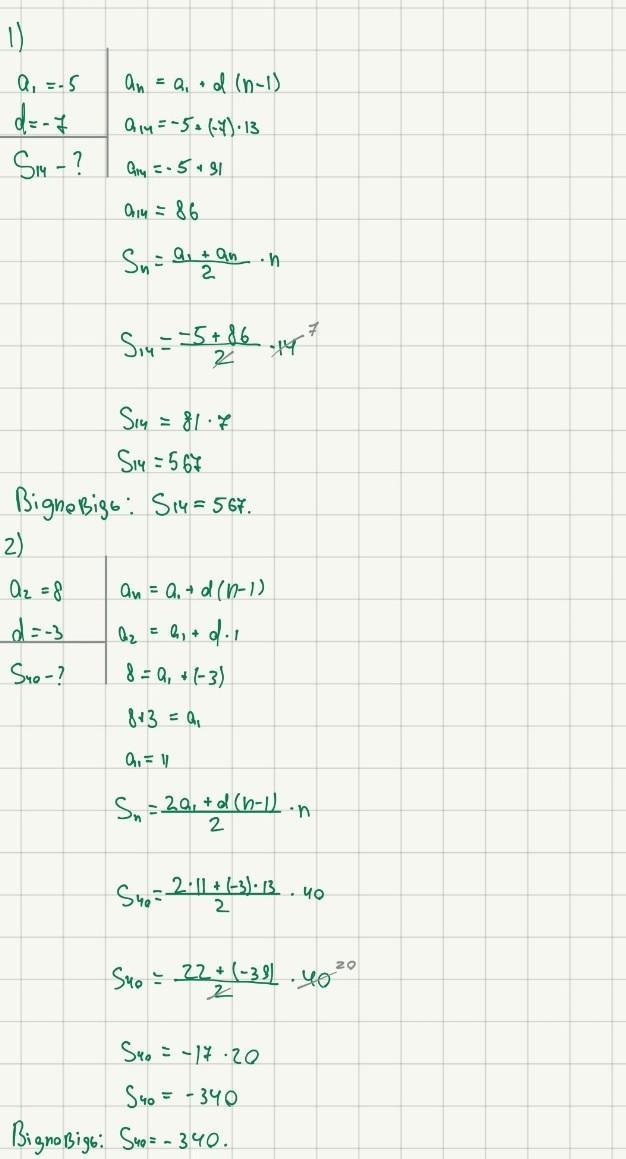 1)
a₁ = -5
d = -7
S₁₄ - ?
aₙ = a₁ + d (n-1)
a₁₄ = -5 + (-7) · 13
a₁₄ = -5 + 91
a₁₄ = 86
Sₙ = (a₁ + aₙ)/2 · n
S₁₄ = (-5 + 86)/2 · 14 7
S₁₄ = 81 · 7
S₁₄ = 567
Відповідь: S₁₄ = 567.
2)
a₂ = 8
d = -3
S₄₀ - ?
aₙ = a₁ + d (n-1)
a₂ = a₁ + d · 1
8 = a₁ + (-3)
8+3 = a₁
a₁ = 11
Sₙ = (2a₁ + d (n-1))/2 · n
S₄₀ = (2 · 11 + (-3) · 13)/2 · 40
S₄₀ = (22 + (-39))/2 · 40 20
S₄₀ = -17 · 20
S₄₀ = -340
Відповідь: S₄₀ = -340.